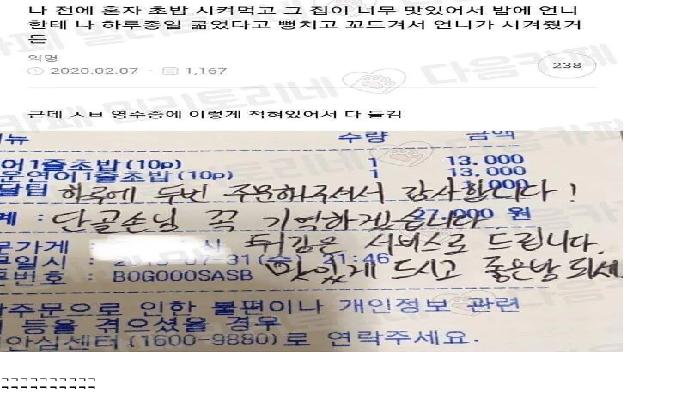 나 전에 혼자 초밥 시켜먹고 그 집이 너무 맛있어서 밤에 언니
한테 나 하루종일 굶었다고 뻥치고 꼬드겨서 언니가 시켜줬거
든
익명
2020.02.07 · 1,167
238
근데 ㅅㅂ 영수증에 이렇게 적혀있어서 다 들킴
뉴 수량 금액
어1줄초밥(10p) 1 13,000
운연어1줄초밥(10p) 1 13,000
달팁 1,000
하루에 두번 주문해주셔서 감사합니다!
계 : 27,000 원
단골손님 꼭 기억하겠습니다
문가게 : 시
튀김은 서비스로 드립니다.
문일시 : 07-31(수) 21:46
맛있게 드시고 좋은밤 되세
문번호 : B0G000SASB
주문으로 인한 불편이나 개인정보 관련
등을 겪으셨을 경우
안심센터(1600-9880)로 연락주세요.
ㅋㅋㅋㅋㅋㅋㅋㅋㅋㅋ
다음카페